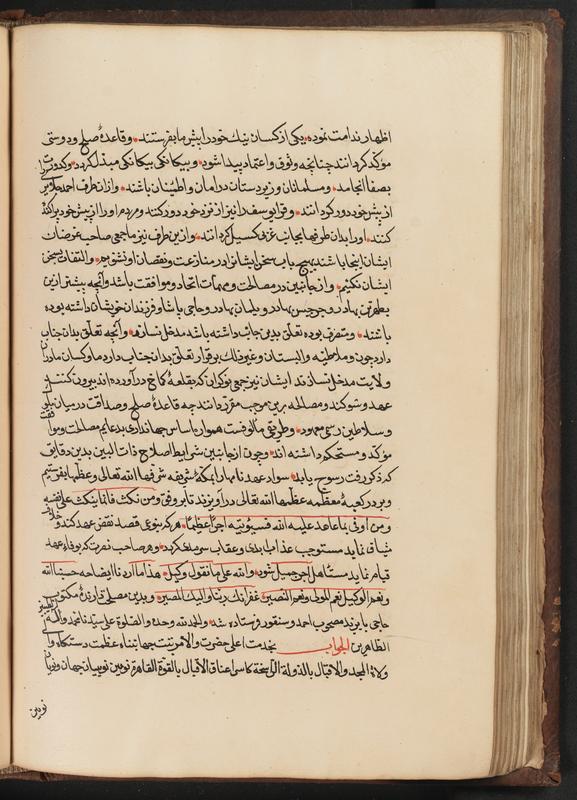 اظهار ندامت نموده یکی از کسان نیک خود را پیش ما بفرستند و قاعدهٔ صلح و دوستی
مؤکد کردانند چنانچه وثوق و اعتماد پیدا شود و بیکانکی بیکانکی مبدل کردد و کدورت
بصفا انجامد و مسلمانان و زیردستان در امان و اطمینان باشند و از ان طرف احمد
از پیش خود دور کردانند و قرا یوسف را نیز از نزد خود دور کنند و مردم او را از پیش خود پراکنده
کنند او را بدان طرفها بجانب غربی کسیل کردانند و ازین طرف نیز ما جمعی صاحب غرضان
ایشان اینجا باشند بهیچ باب سخن ایشانرا در منازعت و نقصان او نشنویم و التفات بسخن
ایشان نکنیم و از جانبین در مصالحت و مهمات اتحاد و موافقت باشد و آنچه پیشتر ازین
بطهرتن بهادر و جرجیس بهادر و بهادر و حاجی پاشا و فرزندان خویشان داشته بوده
باشند و متصرف بوده تعلق بدین جانب داشته باشد مدخل نسازند و آنچه تعلق بدان جناب
دارد چون و ملاطیه و البستان و غیر ذلک برقرار تعلق بدان جناب دارد ما و کسان ما در ان
ولایت مدخل نسازند ایشان نیز جمعی نوکران که بقلعهٔ کماخ درآورده اند بیرون کنند
عهد و شوکند و مصالحه برین موجب مقرر دانند چه قاعدهٔ صلح و صداقت در میان ملوک
و سلاطین رسمی معهود و طریقی مألوفست همواره اساس جهانداری بدعایم مصالحت و موافقت
مؤکد و مستحکم داشته اند و چون از جانبین شرایط اصلاح ذات البین بدین دقایق
که ذکر رفت رسوخ یابد سواد عهدنامها را بمکهٔ شریفه شرفها الله تعالی و عظمها بفرستیم
و بر در کعبهٔ معظمه عظمها الله تعالی در آویزند تا بر وفق و من نکث فانما ینکث علی نفسه
و من اوفی بما عاهد علیه الله فسیؤتیه اجرا عظیما هر که بنوعی قصد نقض عهد کند و خلاف
میثاق نماید مستوجب عذاب ابدی و عقاب سرمدی کردد و هر صاحب نصرت که بوفاء عهد
قیام نماید مستاهل اجر جمیل شود و الله علی ما نقول وکیل هذا ما اردنا ایضاحه حسبنا الله
و نعم الوکیل نعم المولی و نعم النصیر غفرانک ربنا و الیک المصیر و بدین مصلحت مکتوب
حاجی بایزید مصحوب احمد و سنقور فرستاده شد و الحمد لله وحده و الصلوة علی سیدنا محمد و آله
الطاهرین الجواب بخدمت اعلی حضرت والا مرتبت جمهابتناه عظمت دستکاه والی
ولاة المجد و الاقبال بالدولة الراسخة کاسر اعناق الاقیال بالقوة القاهرة نویین نویینان جهان
نویین